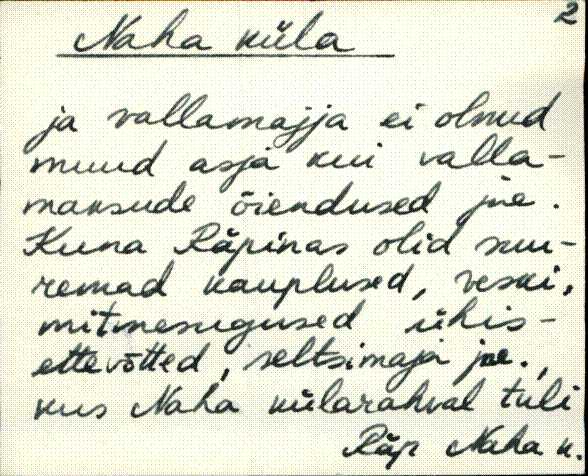 2
Naha küla
ja vallamajja ei olnud
muud asja kui valla-
maksude õiendused jne.
Kuna Räpinas olid suu-
remad kauplused, veski,
mitmesugused ühis-
ettevõtted, seltsimaja jne.,
kus Naha külarahval tuli
Räp Naha k.